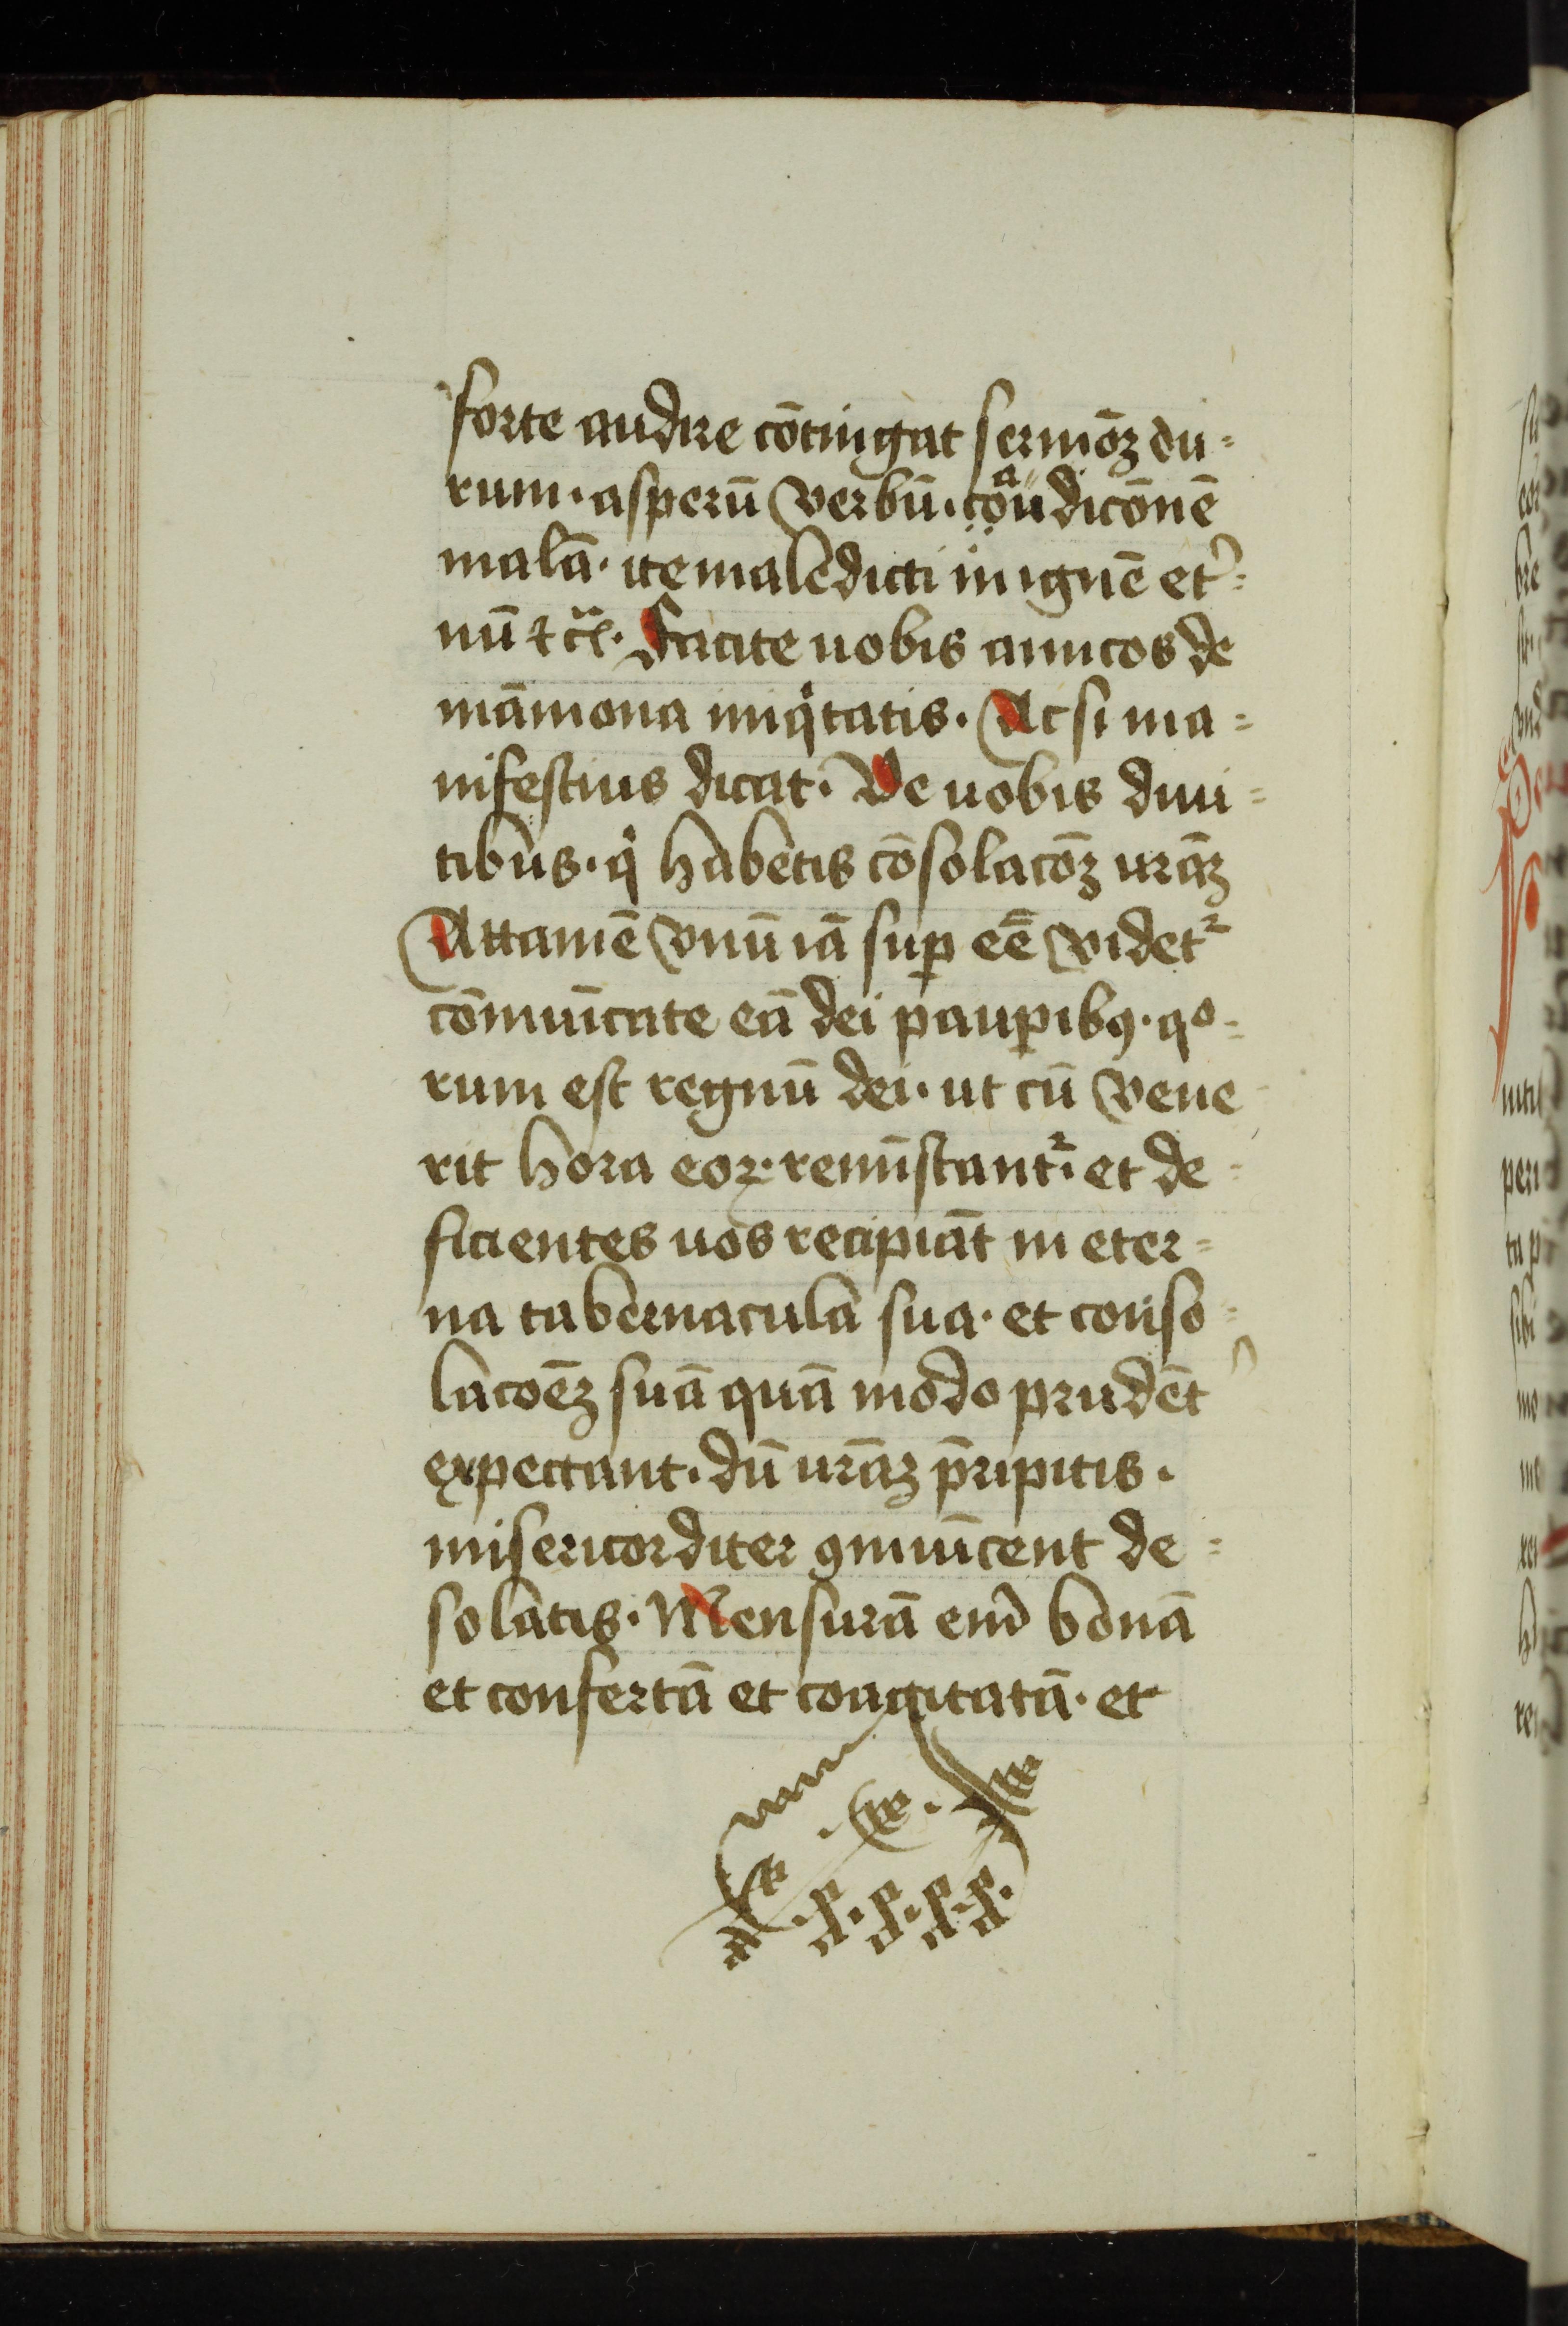 forte audire cōtingat sermōꝫ du⸗
rum · asperū verbū · cōͣudicōnē
malā · ite maledicti in ignē et͛⸗
nū ⁊ cͣ · Facite uobis amicos de
māmona iniqͥtatis · Ac si ma⸗
nifestius dicat · Ve uobis diui⸗
tibus · qͥ habetis cōsolacōꝫ urāꝫ
Attamē vnū iā suꝑ eē̄ videtᷣ
cōmuīcate eā dei pauꝑibꝯ · qͦ⸗
rum est regnū dei · ut cū vene⸗
rit hora eoꝝ · remīstantᷣ · et de⸗
ficientes uos recipiāt in eter⸗
na tabernacula sua · et conso⸗
lacōeꝫ suā quā modo prudēt͛
expectant · dū urāꝫ p̄ripitis ·
misericorditer ꝯmuīcent de⸗
solatis · Mensurā em̄ bonā
et confertā et coagitatā · et